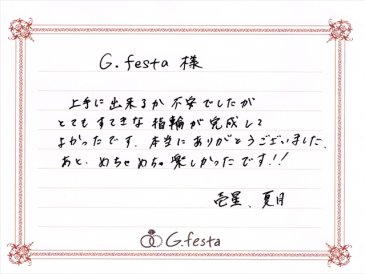 G.festa 様
上手に出来るか不安でしたが
とてもすてきな指輪が完成して
よかったです。本当にありがとうございました。
あと、めちゃめちゃ楽しかったです!!
壱星、夏月
G.festa